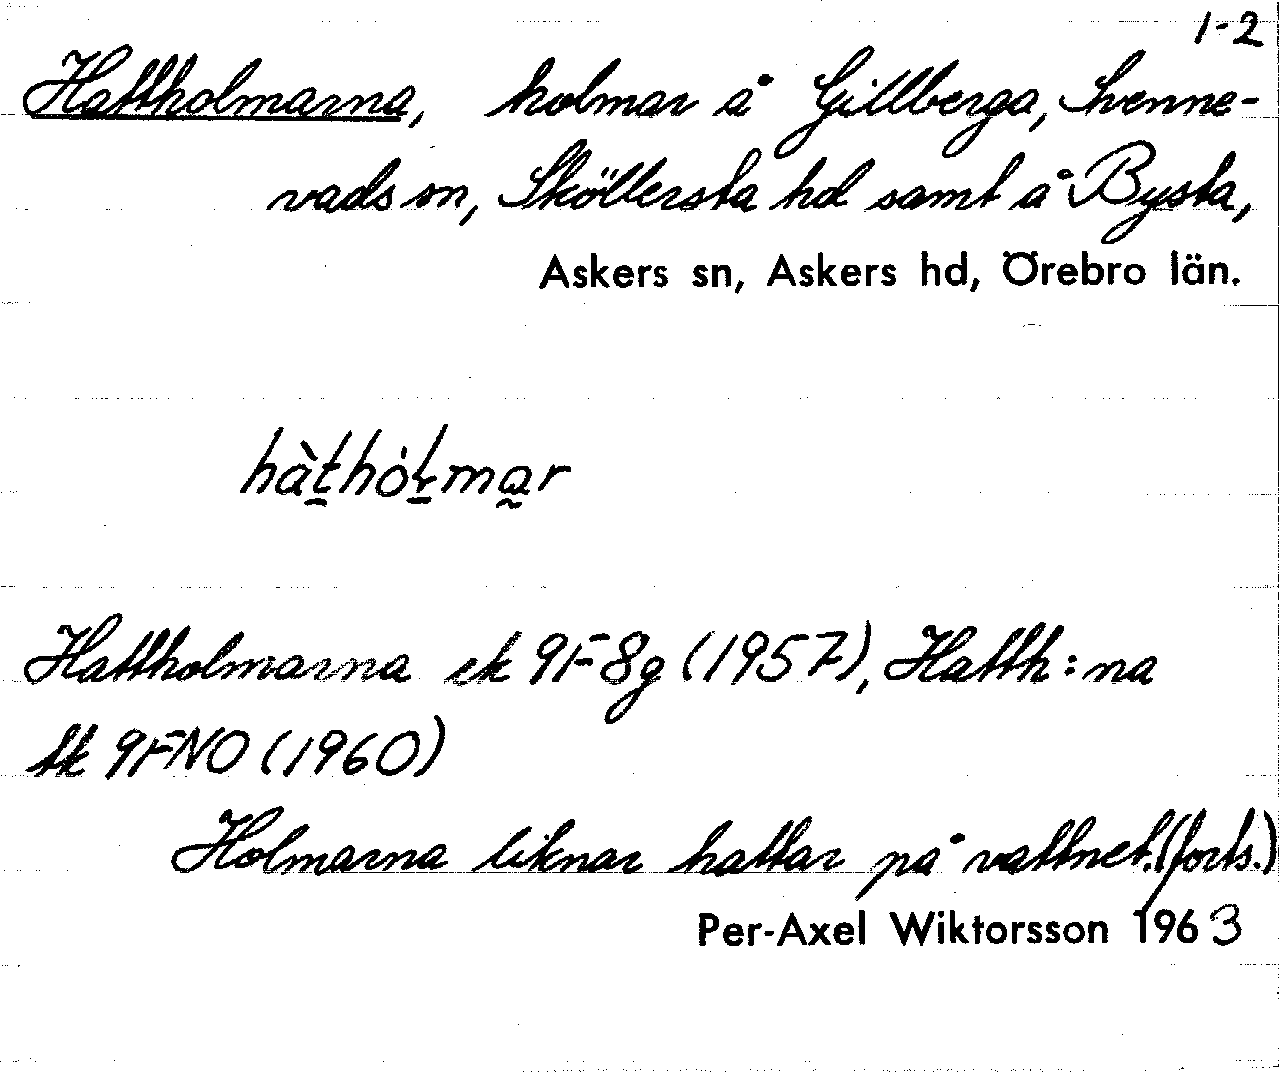 1-2
Hattholmarna, holmar å Gillberga, Svenne-
vads sn, Sköllersta hd samt å Bysta,
Askers sn, Askers hd, Örebro län.
hàt̠hȯł̠ma̰r
Hattholmarna ek 9F 8g (1957), Hatth:na
tk 9FNO (1960)
Holmarna liknar hattar på vattnet. (forts.)
Per-Axel Wiktorsson 1963